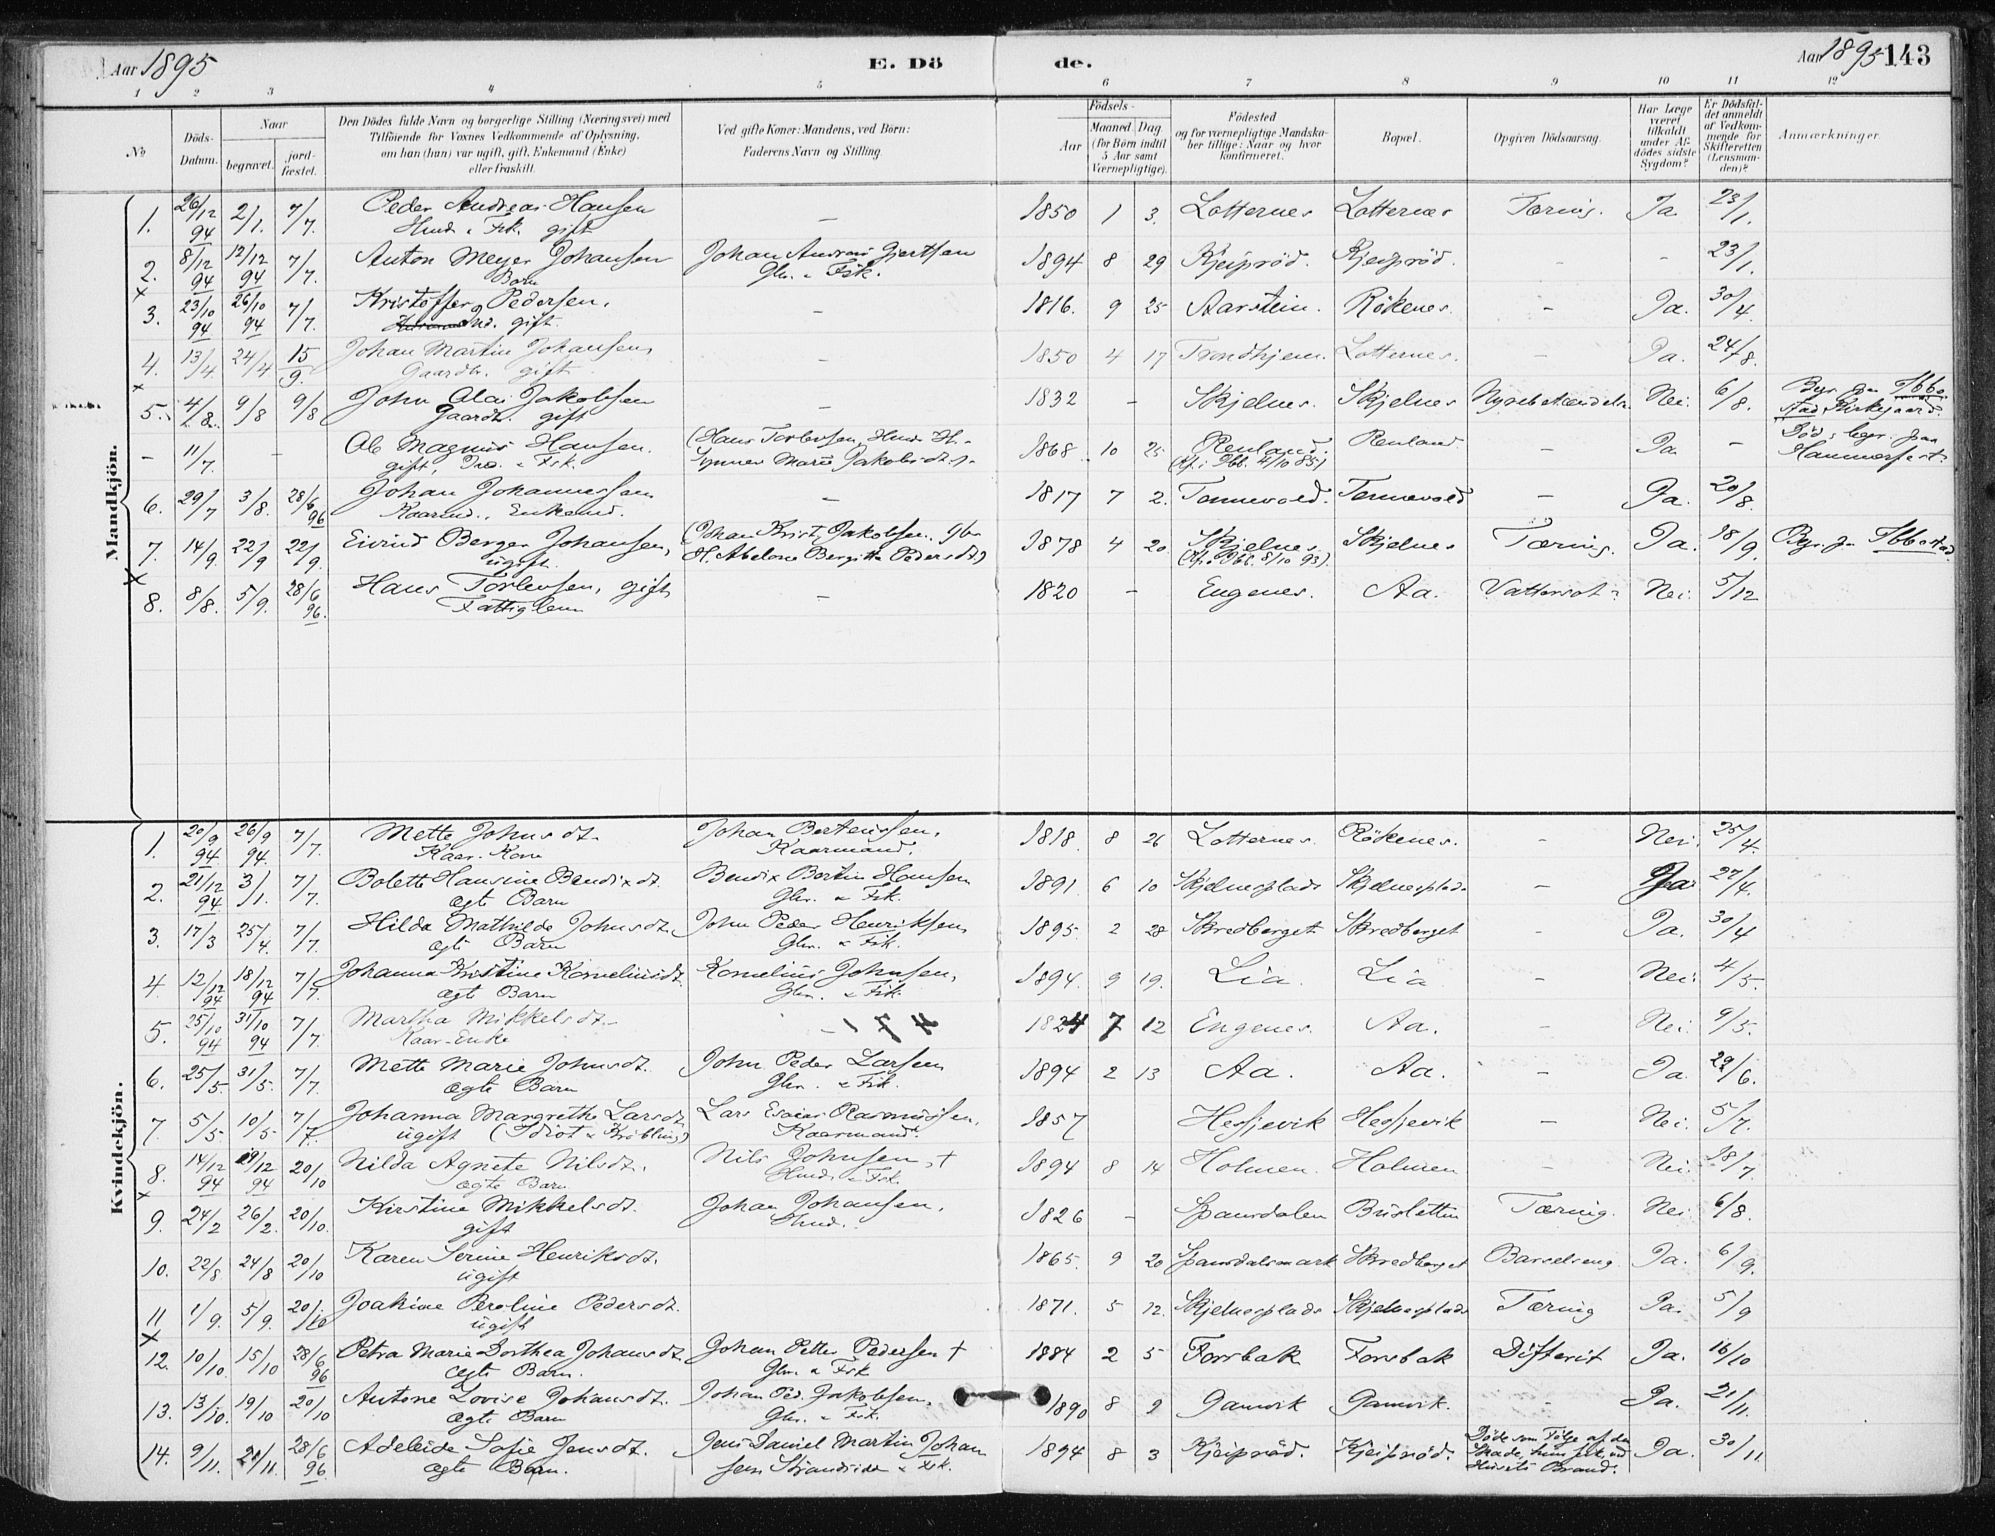 Aar 1895 E. Dö de. Aar 1895 143
1 2 3 4 5 6 7 8 9 10 11 12
No Döds-Datum. Naar begravet. jord-fæstet. Den Dödes fulde Navn og borgerlige Stilling (Næringsvei) med Tilföiende for Voxnes Vedkommende af Oplysning, om han (hun) var ugift, gift, Enkemand (Enke) eller fraskilt. Ved gifte Koner: Mandens, ved Börn: Faderens Navn og Stilling. Födsels- Aar Maaned Dag (for Börn indtil 5 Aar samt Værnepligtige). Födested og for værnepligtige Mandskaber tillige: Naar og hvor konfirmeret. Bopæl. Opgiven Dödsaarsag. Har Læge været tilkaldt under Afdödes sidste Sygdom? Er Dödsfaldet anmeldt af Vedkommende for Skifteretten (Lensmanden)? Anmærkninger.
Mandkjön.
1. 26/12 94 2/1. 7/7. Peder Andreas Hansen – 1850 1 3. Lotternes Lotternes Tæring. Ja 23/1.
Husm. & Fisk. gift
2. 8/12 94 12/12 94 7/7. Anton Meyer Johansen Johan Andreas Gjertsen 1894 8 29 Kjeiprød. Kjeiprød. - - 23/1.
Barn Gbr. & Fisk.
3. 23/10 94 26/10 94 7/7. Kristoffer Pedersen. – 1816. 9 25 Aarstein. Rökenes. – Ja. 30/4.
gift.
4. 13/4. 24/4 15/9. Johan Martin Johansen – 1850 4 17 Trondhjem. Lotternes. – Ja. 24/8.
Gaardbr. gift
5. 4/8. 9/8 9/8 John Olai Jakobsen – 1832 – Skjelnes. Skjelnes Nyrebetændelse Nei. 6/8. Begr. paa Ibbestad Kirkegaard.
Gaardb. gift
– 11/7. – Ole Magnus Hansen. (Hans Torlevsen, Husm. H. 1868. 10 25 Renland. Renland – Ja – Död & begr. paa Hammerfest.
gift, Ind. & Fisk. Marie Jakobsdt.) (Kf. i Ibb. 4/10 85)
6. 29/7 3/8. 28/6 96 Johan Johannessen – 1817 7 2. Tennevold. Tennevold – Ja. 20/8.
Kaarmd., Enkemd.
7. 14/9. 22/9 22/9. Eivind Berger Johansen, (Johan Krist. Jakobsen, Gbr 1878 4 20 Skjelnes Skjelnes Tæring. Ja. 18/9. Begr. paa Ibbestad.
ugift. H. Abelone Bergitte Pedersdt.) (Kf. i Ibb. 8/10 93).
8. 8/8. 5/9. 28/6 96. Hans Torlevsen, gift – 1820 – Engenes. Aa. Vattersot Nei. 5/12
Fattiglem
Kvindekjön.
1. 20/9 94 26/9 94. 7/7. Mette Johnsdt. Johan Berteussen, 1818. 8 26 Lotternes. Rökenes. – Nei. 25/4.
Kaar-Kone Kaarmand.
2. 21/12 94 3/1. 7/7. Bolette Hansine Bendixdt. Bendix Bertin Hansen 1891 6 10 Skjelnesplads Skjelnesplads – Ja 27/4.
ægte Barn Gbr. & Fisk.
3. 17/3 25/4. 7/7. Hilda Mathilde Johnsdt. John Peder Henriksen, 1895. 2 28 Skredberget Skredberget - Ja. 30/4
ægte Barn Gbr. & Fisk.
4. 12/12 94 18/12 94 7/7. Johanna Kristine Korneliusdt. Kornelius Johnsen, 1894. 9 19. Lia. Lia – Nei 4/5.
ægte Barn Gbr. & Fisk.
5. 25/10 94 31/10 94 7/7. Martha Mikkelsdt. – 1824 7 12 Engenes. Aa. – Nei. 9/5.
Kaar-Enke
6. 25/5. 31/5. 7/7. Mette Marie Johnsdt. John Peder Larsen 1894 2 13 Aa. Aa. – Ja 29/6.
ægte Barn Gbr. & Fisk.
7. 5/5 10/5. 7/7. Johanna Margrethe Larsdt. Lars Esaias Rasmussen, 1857 Hesjevik Hesjevik – Nei. 5/7.
ugift (Idiot & Krøbling) Kaarmand.
8. 14/12 94 29/12 94 20/10 Nilda Agnete Nilsdt. Nils Johnsen, † 1894 8 14 Holmen. Holmen – Nei. 18/7.
ægte Barn Husmd. & Fisk.
9. 24/2 26/2. 20/10. Kirstine Mikkelsdt. Johan Johansen. 1826 – Spansdalen Brusletten Tæring. Nei. 6/8.
gift Husmd.
10. 22/8 24/8 20/10 Karen Serine Henriksdt. 1865. 9 20 Spansdalsmark Skredberget Barselseng Ja. 6/9.
ugift
11 1/9. 5/9. 20/10 Joakine Peroline Pedersdt. 1871. 5 12. Skjelnesplads Skjelnesplads Tæring Ja. 5/9
ugift
12. 10/10. 15/10 28/6 96 Petra Marie Dorthea Johansdt. Johan Petter Pedersen † 1884 2 5 Forsbak Forsbak Difterit Ja. 16/10
ægte Barn. Gbr. & Fisk
13. 13/10. 19/10 20/10 Antone Lovise Johansdt. Johan Ped. Jakobsen, 1890 8 9 Gamvik Gamvik. - Ja. 21/11.
ægte Barn Gbr. & Fisk.
14. 9/11. 20/11. 28/6 96. Adeleide Sofie Jensdt. Jens Daniel Martin Johan 1894 8 3 Kjeiprød. Kjeiprød. Døde som Følge af den Skade, hun fik ved Husets Brand. Ja. 30/11.
ægte Barn. sen Strandsidder & Fisk.